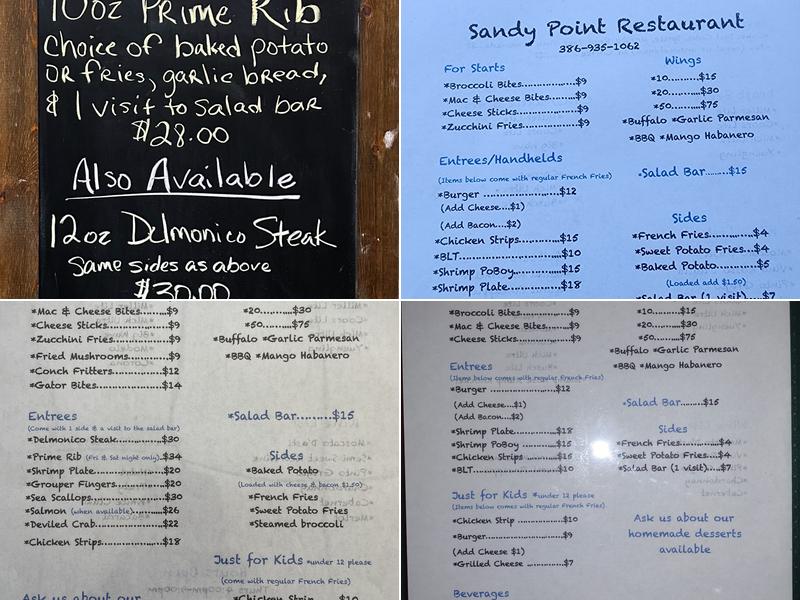 10oz Prime Rib
Choice of baked potato
OR fries, garlic bread,
& 1 visit to Salad bar
$28.00
Also Available
12oz Delmonico Steak
Same sides as above
$30.00
Sandy Point Restaurant
386-935-1062
For Starts
*Broccoli Bites...............$9
*Mac & Cheese Bites.......$9
*Cheese Sticks..............$9
*Zucchini Fries..............$9
Entrees/Handhelds
(Items below come with regular French Fries)
*Burger ..................$12
(Add Cheese....$1)
(Add Bacon....$2)
*Chicken Strips.........$15
*BLT.........................$10
*Shrimp PoBoy..........$15
*Shrimp Plate...........$18
Wings
*10.........$15
*20.........$30
*50.........$75
*Buffalo *Garlic Parmesan
*BBQ *Mango Habanero
*Salad Bar.......$15
Sides
*French Fries...........$4
*Sweet Potato Fries...$4
*Baked Potato..........$5
(Loaded add $1.50)
*Salad Bar (1 visit)....$7
*Mac & Cheese Bites.......$9
*Cheese Sticks..............$9
*Zucchini Fries..............$9
*Fried Mushrooms.........$9
*Conch Fritters............$12
*Gator Bites................$14
Entrees
(Come with 1 side & a visit to the salad bar)
*Delmonico Steak..........$30
*Prime Rib (Fri & Sat night only)..$34
*Shrimp Plate...............$20
*Grouper Fingers..........$20
*Sea Scallops................$30
*Salmon (when available).....$26
*Deviled Crab...............$22
*Chicken Strips.............$18
Ask us about our
*20.........$30
*50.........$75
*Buffalo *Garlic Parmesan
*BBQ *Mango Habanero
*Salad Bar.......$15
Sides
*Baked Potato
(Loaded with cheese & bacon $1.50)
*French Fries
*Sweet Potato Fries
*Steamed broccoli
Just for Kids *under 12 please
(come with regular French Fries)
*Chicken Strip ........$10
*Broccoli Bites...............$9
*Mac & Cheese Bites.......$9
*Cheese Sticks..............$9
Entrees
(Items below comes with regular French Fries)
*Burger ..................$12
(Add Cheese....$1)
(Add Bacon....$2)
*Shrimp Plate...........$18
*Shrimp PoBoy..........$15
*Chicken Strips.........$15
*BLT.........................$10
Just for Kids *under 12 please
(Items below come with regular French Fries)
*Chicken Strip ..........$10
*Burger....................$9
(Add Cheese $1)
*Grilled Cheese ..........$7
Beverages
*10.........$15
*20.........$30
*50.........$75
*Buffalo *Garlic Parmesan
*BBQ *Mango Habanero
*Salad Bar.......$15
Sides
*French Fries...........$4
*Sweet Potato Fries...$4
*Salad Bar (1 visit)....$7
Ask us about our
homemade desserts
available